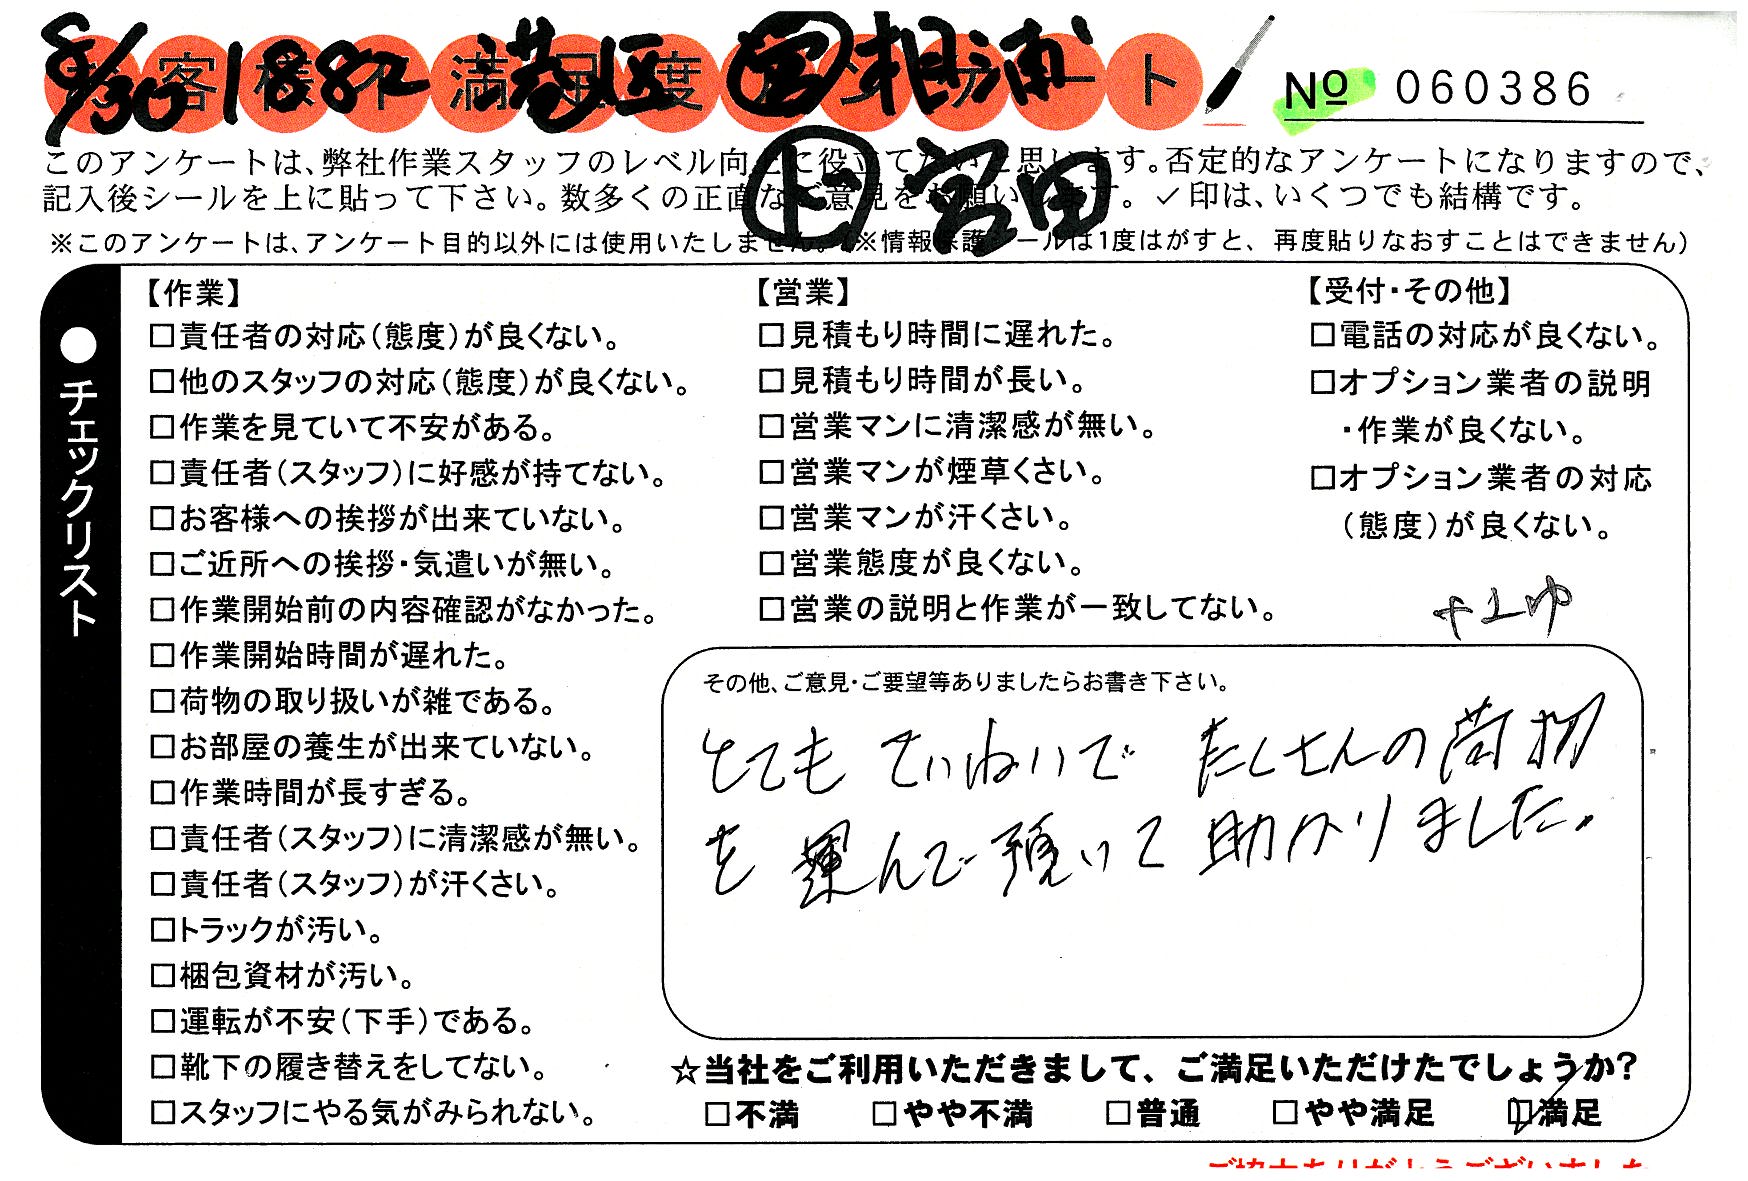 お客様不満足度アンケート
8/30 1882 港区 営 相浦
№ 060386
ト 宮田
このアンケートは、弊社作業スタッフのレベル向上に役立てたいと思います。否定的なアンケートになりますので、
記入後シールを上に貼って下さい。数多くの正直なご意見をお願いします。✓印は、いくつでも結構です。
※このアンケートは、アンケート目的以外には使用いたしません。(※情報保護シールは1度はがすと、再度貼りなおすことはできません)
●チェックリスト
【作業】
□責任者の対応(態度)が良くない。
□他のスタッフの対応(態度)が良くない。
□作業を見ていて不安がある。
□責任者(スタッフ)に好感が持てない。
□お客様への挨拶が出来ていない。
□ご近所への挨拶・気遣いが無い。
□作業開始前の内容確認がなかった。
□作業開始時間が遅れた。
□荷物の取り扱いが雑である。
□お部屋の養生が出来ていない。
□作業時間が長すぎる。
□責任者(スタッフ)に清潔感が無い。
□責任者(スタッフ)が汗くさい。
□トラックが汚い。
□梱包資材が汚い。
□運転が不安(下手)である。
□靴下の履き替えをしてない。
□スタッフにやる気がみられない。
【営業】
□見積もり時間に遅れた。
□見積もり時間が長い。
□営業マンに清潔感が無い。
□営業マンが煙草くさい。
□営業マンが汗くさい。
□営業態度が良くない。
□営業の説明と作業が一致してない。
【受付・その他】
□電話の対応が良くない。
□オプション業者の説明
・作業が良くない。
□オプション業者の対応
(態度)が良くない。
その他、ご意見・ご要望等ありましたらお書き下さい。
とても ていねいで たくさんの荷物
を 運んで 頂いて 助かりました。
☆当社をご利用いただきまして、ご満足いただけたでしょうか?
□不満 □やや不満 □普通 □やや満足 ☑満足
ご協力ありがとうございました